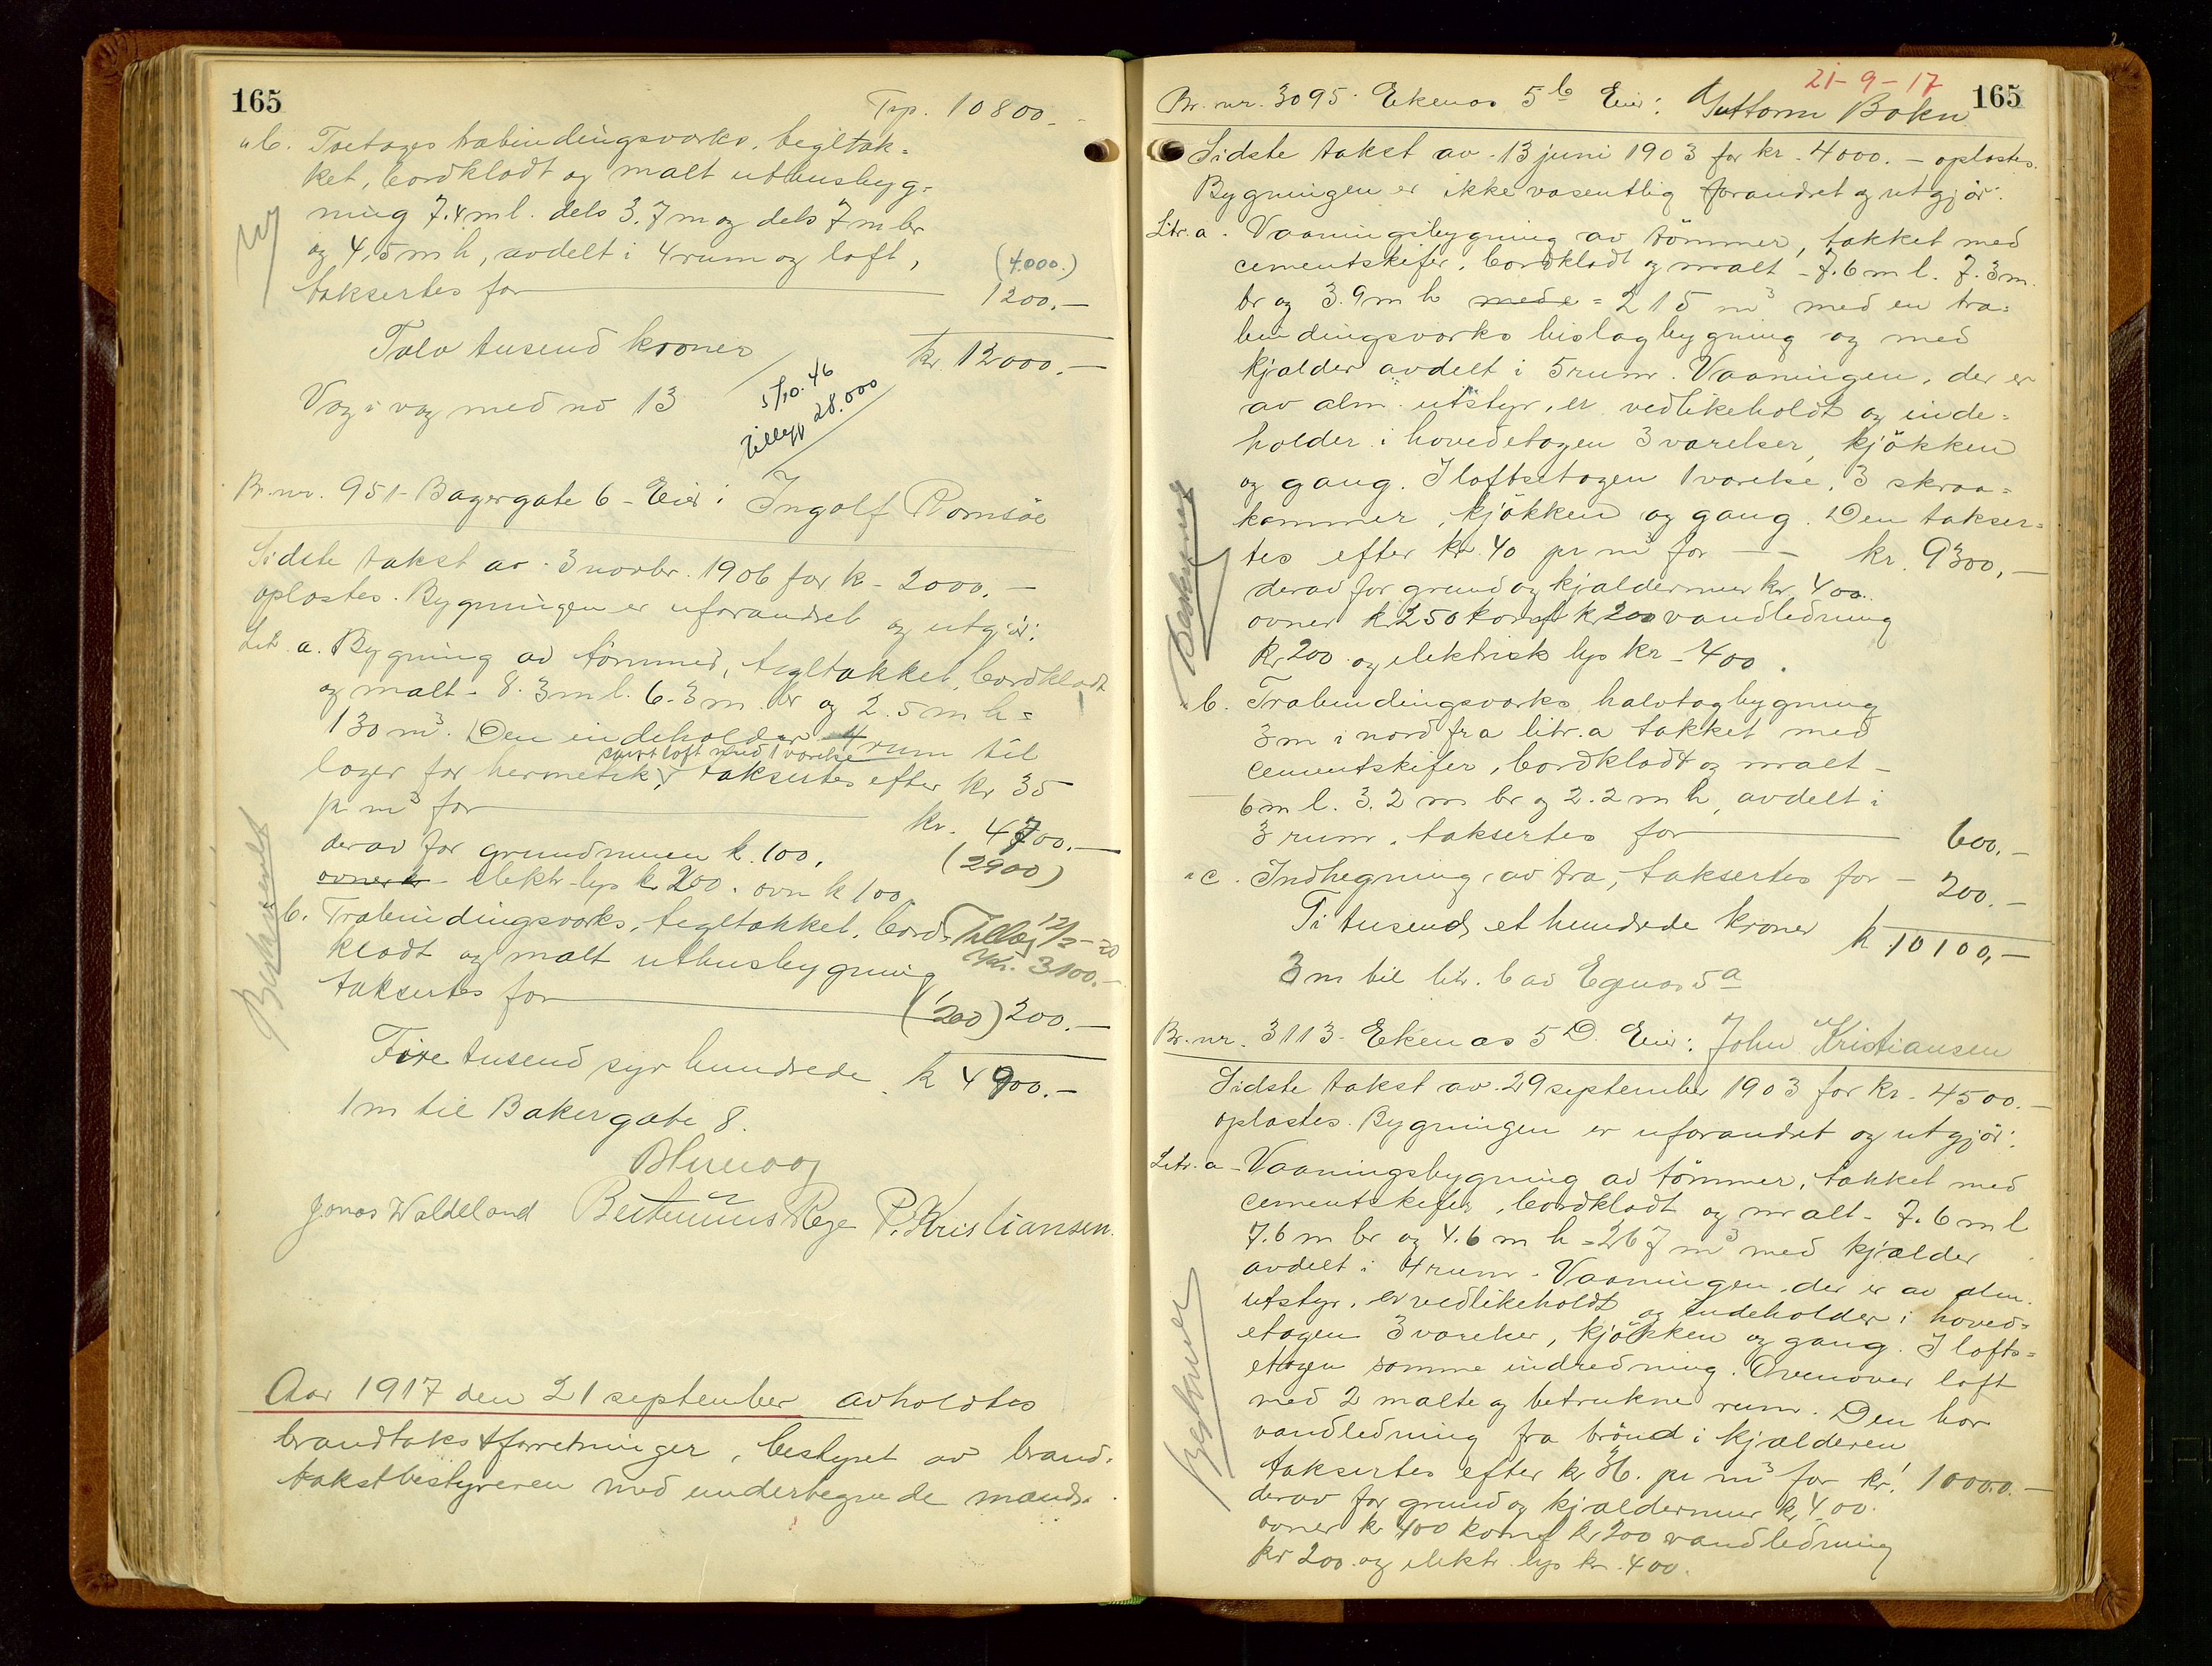 165
Trp. 10800.-
" b. Toetages træbindingsværks, tegltæk=
ket, bordklædt og malt uthusbyg=
ning 7.4 m l. dels 3.7 m og dels 7 m br
og 4,5 m h, avdelt i 4 rum og loft,
(4.000.)
taksertes for 1200.-
Tolv tusend kroner kr. 12000.-
Væg i væg med no 13
5/10. 46
Tillegg 28.000
Br. nr. 951 - Bagergate 6 - Eier: Ingolf Romsöe
Sidste takst av 3 novbr. 1906 for k - 2000.-
oplæstes. Bygningen er uforandret og utgjør:
Litr. a. Bygning av tømmer, tegltækket, bordklædt
og malt - 8.3 m l. 6.3 m br og 2.5 m h =
130 m³. Den indeholder 4 rum til
samt loft med 1 værelse
lager for hermetik, taksertes efter kr 35
pr m³ for kr. 4700.-
derav for grundmuren k. 100, (2900)
ovner kr - elektr. lys k 200. ovn k 100
b. Træbindingsværks, tegltækket, bord=
Tillæg 12/2-20
klædt og malt uthusbygning
kr. 3100.-
taksertes for (200) 200.-
Fire tusend syv hundrede k 4900.-
1 m til Bakergate 8.
Jonas Waldeland P. Kristiansen.
Aar 1917 den 21 september avholdtes
brandtakstforretninger, bestyret av brand=
takstbestyreren med undertegnede mænd.
21-9-17
165
Br. nr. 3095. Ekenæs 5 b Eier: Guttorm Bokn
Sidste takst av 13 juni 1903 for kr. 4000.- oplæstes.
Bygningen er ikke væsentlig forandret og utgjør:
Litr. a. Vaaningsbygning av tömmer, tækket med
cementskifer, bordklædt og malt - 7.6 m l. 7.3 m.
br og 3.9 m h mede = 215 m³ med en træ=
bindingsværks bislagbygning og med
kjælder avdelt i 5 rum. Vaaningen, der er
av alm. utstyr, er vedlikeholdt og inde=
holder i hovedetagen 3 værelser, kjökken
og gang. I loftsetagen 1 værelse, 3 skraa=
kammer, kjökken og gang. Den takser=
tes efter kr. 40 pr m³ for - - kr. 9300,-
derav for grund og kjældermur kr. 400.
ovner kr 250 komf k 200 vandledning
kr. 200 og elektrisk lys kr - 400.
b. Træbindingsværks halvtagbygning
3 m i nord fra litr. a tækket med
cementskifer, bordklædt og malt -
6 m l. 3.2 m br og 2.2 m h, avdelt i
3 rum, taksertes for 600.-
" c. Indhegning av træ, taksertes for - 200.-
Ti tusend et hundrede kroner k 10100,-
3 m til litr. b av Egenæs 5 a
Br. nr. 3113. Ekenæs 5 D. Eier: John Kristiansen
Sidste takst av 29 september 1903 for kr. 4500.-
oplæstes. Bygningen er uforandret og utgjör:
Litr. a - Vaaningsbygning av tömmer, tækket med
cementskifer, bordklædt og malt - 7.6 m l
7.6 m br og 4.6 m h = 267 m³ med kjælder
avdelt i 4 rum. Vaaningen, der er av alm.
utstyr, er vedlikeholdt og indeholder i hoved=
etagen 3 værelser, kjökken og gang. I lofts=
etagen samme indredning. Ovenover loft
med 2 malte og betrukne rum. Den har
vandledning fra brönd i kjælderen
taksertes efter kr 36. pr m³ for kr. 10000.-
derav for grund og kjældermur kr. 400.
ovner kr 400 komf kr 200 vandledning
kr 200. og elektr. lys kr. 400.